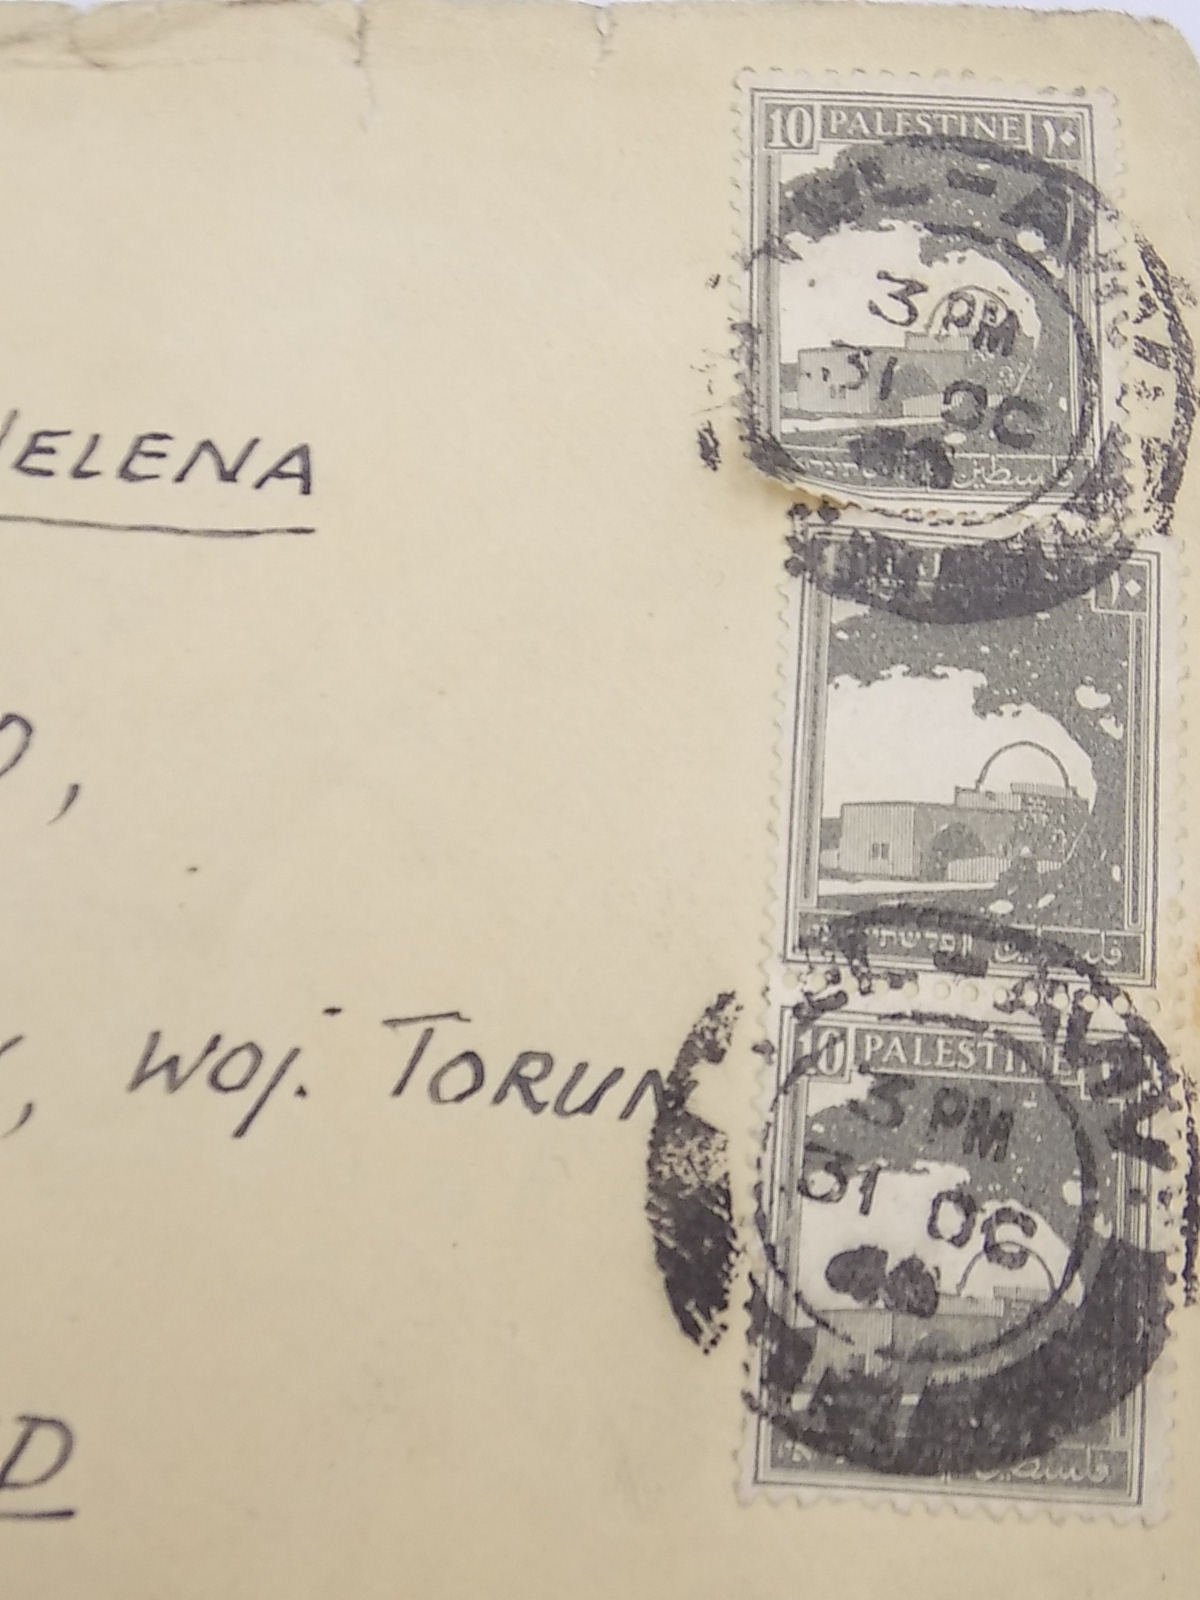 10 PALESTINE ١٠
TEL-AV
3 PM
31 OC
فلسطين
HELENA
١٠
D,
פלשתינה א״י فلسطين
TEL-AVIV
10 PALESTINE
, WOJ. TORUN
3 PM
31 OC
فلسطين
D